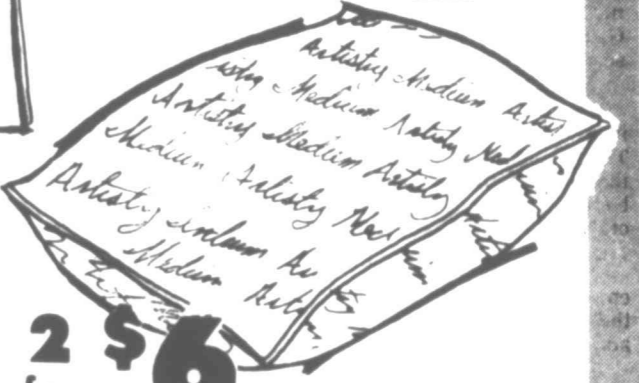 Artistry Medium Artist
istry Medium Artistry Med
Artistry Medium Artistry
Medium Artistry Med
Artistry Medium Ar
Medium Artis
2 $6
for